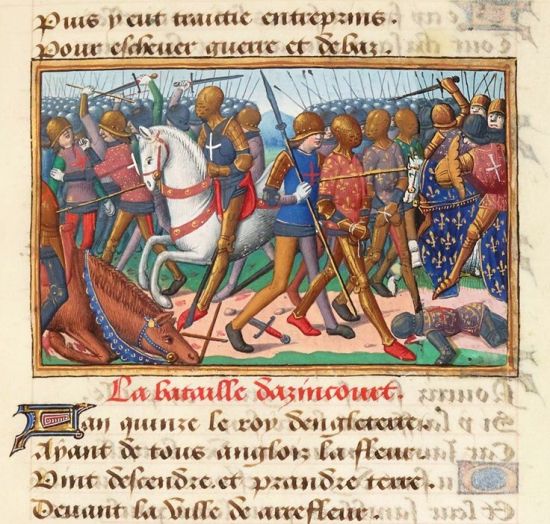 Puis y eut traictie entreprins.
Pour eschever guerre et debaz
La bataille dazincourt.
Lan quinze le roy dengleterre
Ayant de tous anglois la fleur
Vint descendre et prandre terre.
Devant la ville de arrefleur.